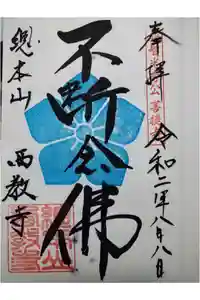 奉拝
令和二年八月八日
不断念佛
総本山
西教寺